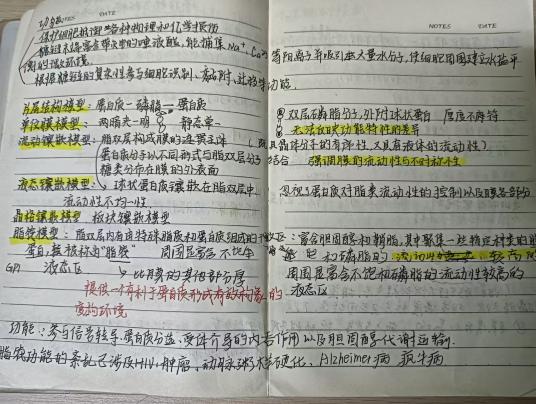 NOTES DATE
NOTES DATE
功能
保护细胞抵御各种物理和化学损伤
糖链末端富含带负电的唾液酸,能捕集Na⁺、Ca²⁺等阳离子并吸引大量水分子,使细胞周围建立水盐平
衡的微环境
根据糖链的复杂性参与细胞识别、黏附、迁移等功能
片层结构模型:蛋白质—磷脂—蛋白质
①双层磷脂分子,外附球状蛋白 厚度不符
单位膜模型:两暗夹一明 静态单一
②无法说明功能特性的差异
流动镶嵌模型:脂双层构成膜的连贯主体(既具晶体分子的有序性,又具有液体的流动性)
蛋白质分子以不同形式与脂双层分子结合 强调膜的流动性与不对称性
糖类分布在膜的外表面
液态镶嵌模型:球状蛋白质镶嵌在脂双层中, 忽视了蛋白质对脂类流动性的控制以及膜各部分
流动性不均一性
晶格镶嵌模型 板块镶嵌模型
脂筏模型:脂双层内由特殊脂质和蛋白质组成的微区:富含胆固醇和鞘脂,其中聚集一些特定种类的膜
蛋白,被称为"脂筏" 周围是富含不饱和磷脂的
周围是富含不饱和磷脂的流动性较高的
GPI 液态区 液态区
比膜的其他部分厚
提供一个有利于蛋白质形成有效构象的
变构环境
功能:参与信号转导、蛋白质分选、受体介导的内吞作用以及胆固醇代谢运输
脂筏功能的紊乱已涉及HIV、肿瘤、动脉粥样硬化、Alzheimer病 疯牛病